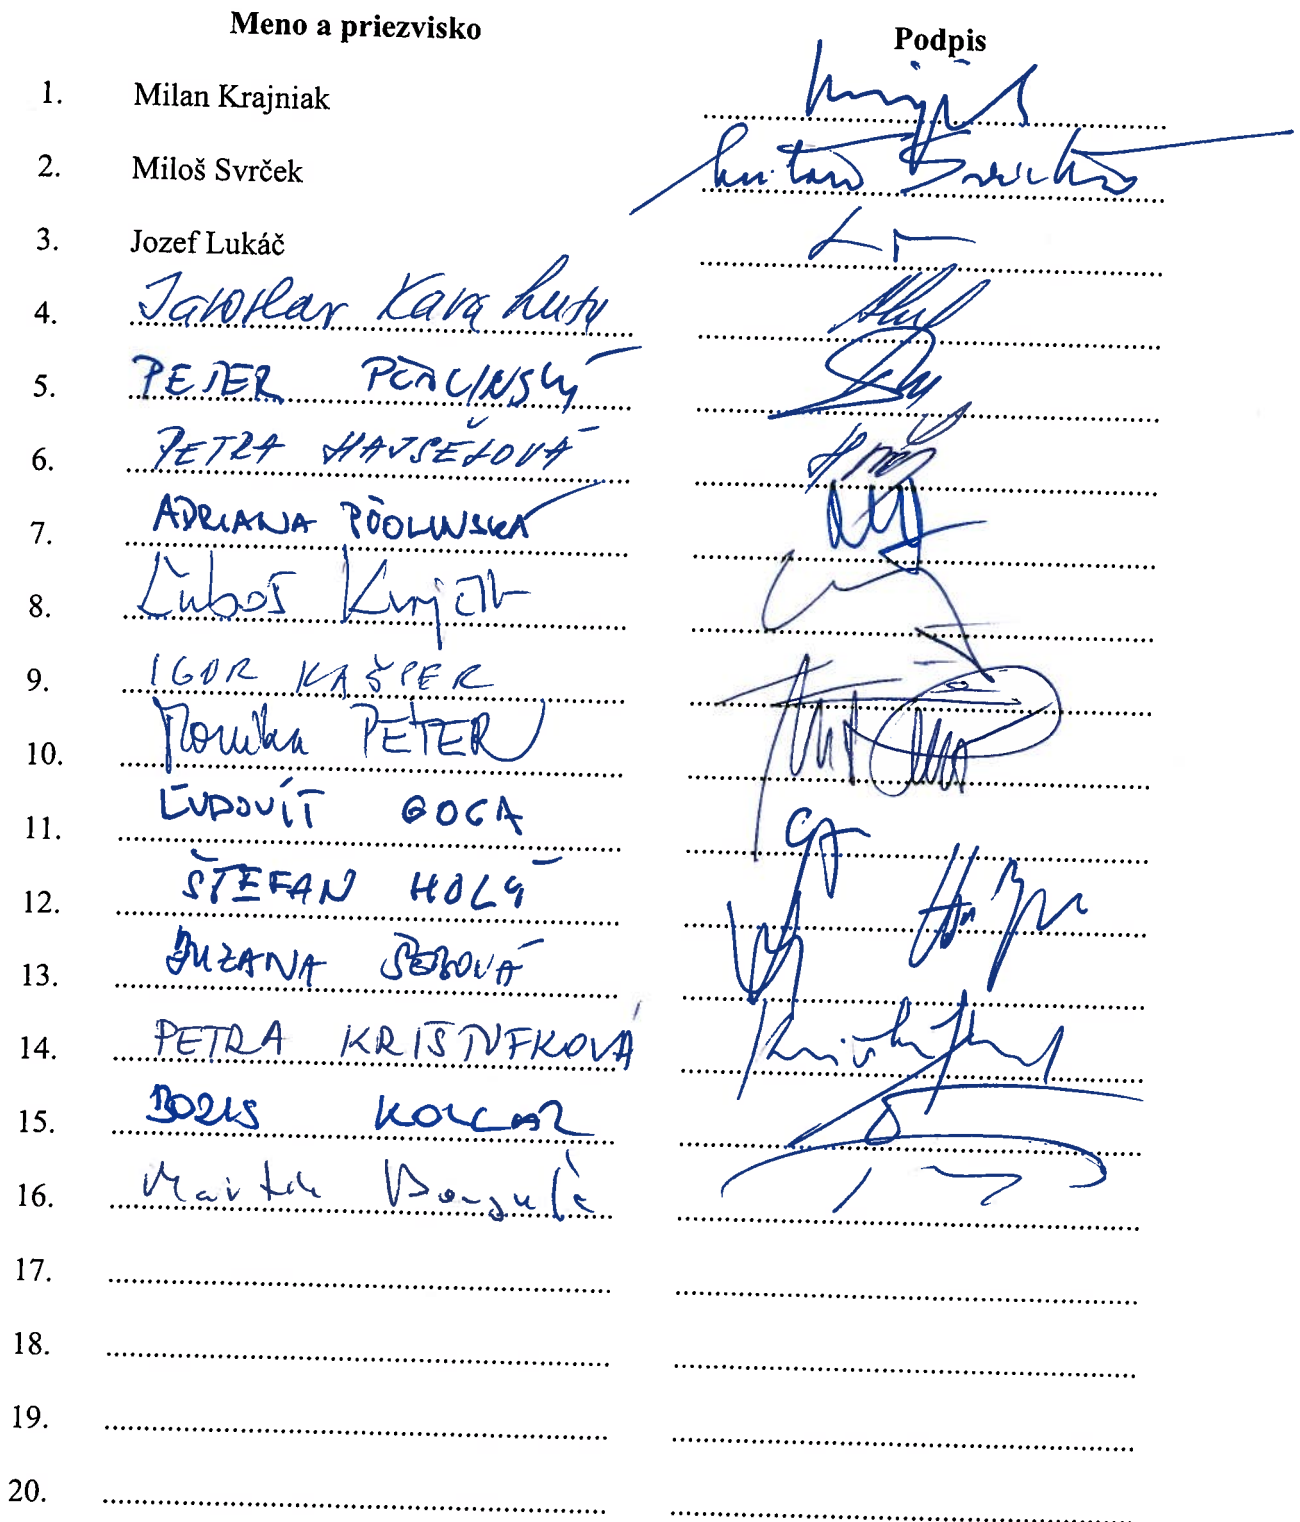 Meno a priezvisko Podpis
1. Milan Krajniak
2. Miloš Svrček
3. Jozef Lukáč
4. Jaroslav Karahuta
5. PETER PČOLINSKÝ
6. PETRA HAJŠELOVÁ
7. ADRIANA PČOLINSKÁ
8. Ľuboš Krajčír
9. IGOR KAŠPER
10. Monika PETER
11. ĽUDOVÍT GOGA
12. ŠTEFAN HOLÝ
13. ZUZANA ŠEBOVÁ
14. PETRA KRIŠTÚFKOVÁ
15. BORIS KOLLÁR
16. Martin Borguľa
17.
18.
19.
20.